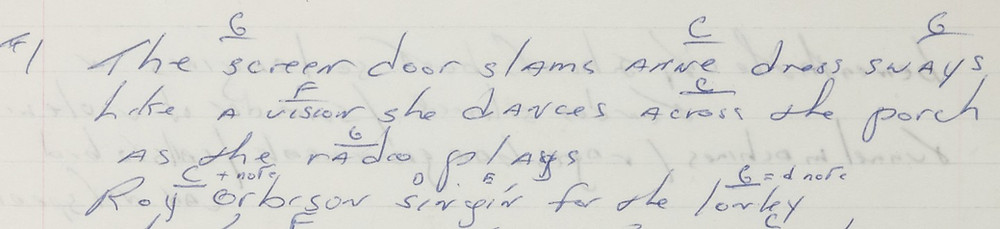 G C G
#1 The screen door slams ANNE dress SWAYS
F C
Like A vision she dances Across the porch
G
As the radio plays
C + note D . E , G = d note
Roy Orbison singin for the lonley
F C